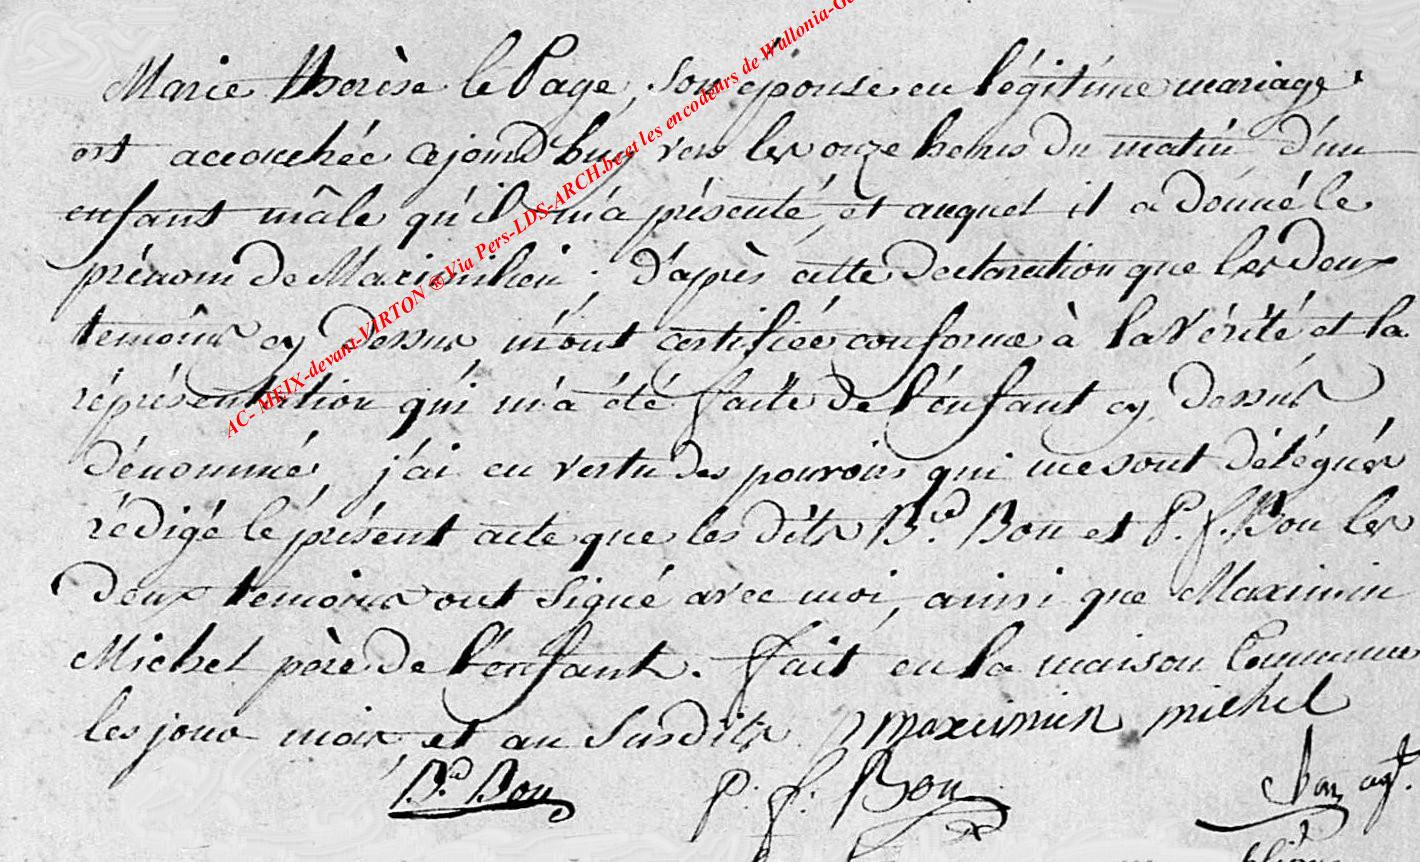 Marie thérèse le Page, son épouse en légitime mariage
est accouchée cejourd'huy vers les onze heures du matin d'un
enfant mâle qu'il m'a présenté, et auquel il a donné le
prénom de Maximilien; d'après cette declaration que les deux
temoins cy dessus m'ont certifiée conforme à la vérité et la
réprésentation qui m'a été faite de l'enfant cy dessus
dénommé, j'ai en vertu des pouvoirs qui me sont délégués
rédigé le présent acte que les dits B.d Bon et P. f. Bon les
deux temoins ont signé avec moi, ainsi que Maximin
Michel père de l'enfant. fait en la maison Commune
les jour mois et an susdits maximin michel
B.d Bon P. f. Bon agt.
AC- MEIX-devant-VIRTON ® Via Pers-LDS-ARCH.be et les encodeurs de Wallonia-Ge